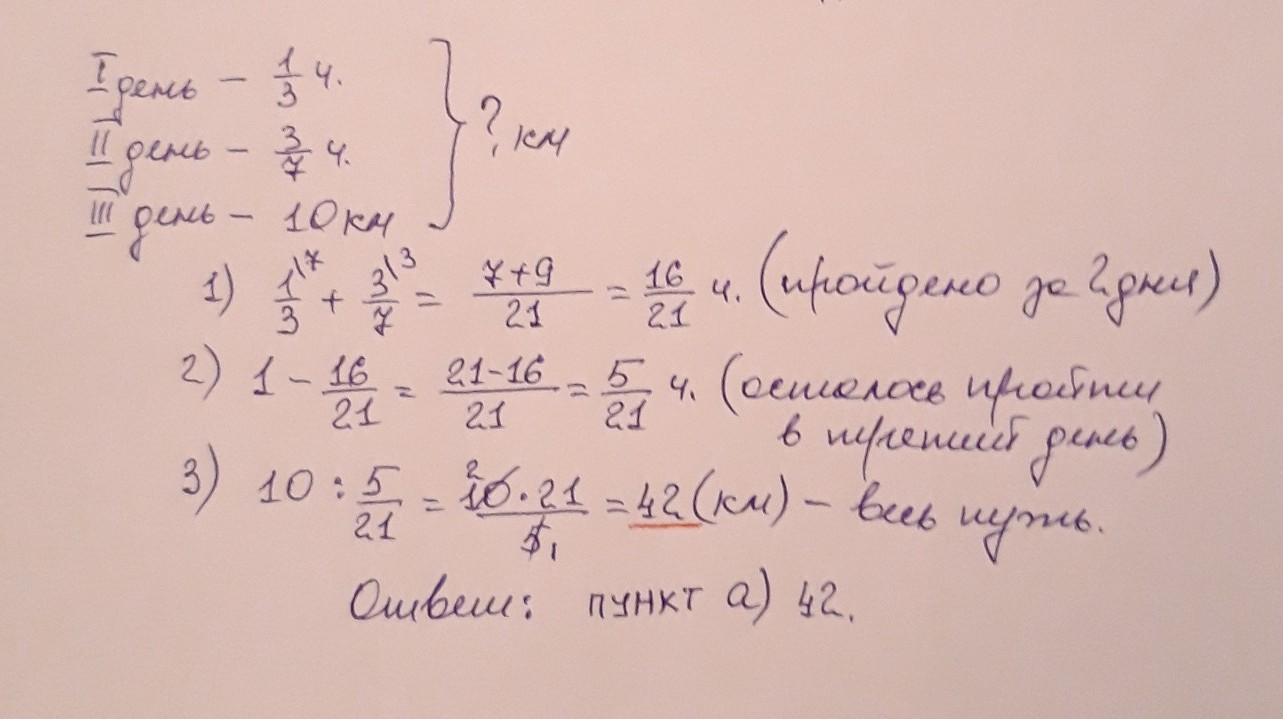 I день – 1/3 ч.
II день – 3/7 ч.
III день – 10 км
? км
1) 1/3\7 + 3/7\3 = 7+9/21 = 16/21 ч. (пройдено за 2 дня)
2) 1 – 16/21 = 21-16/21 = 5/21 ч. (осталось пройти
в третий день)
3) 10 : 5/21 = 10·21/5 = 42 (км) – весь путь.
Ответ: пункт а) 42.